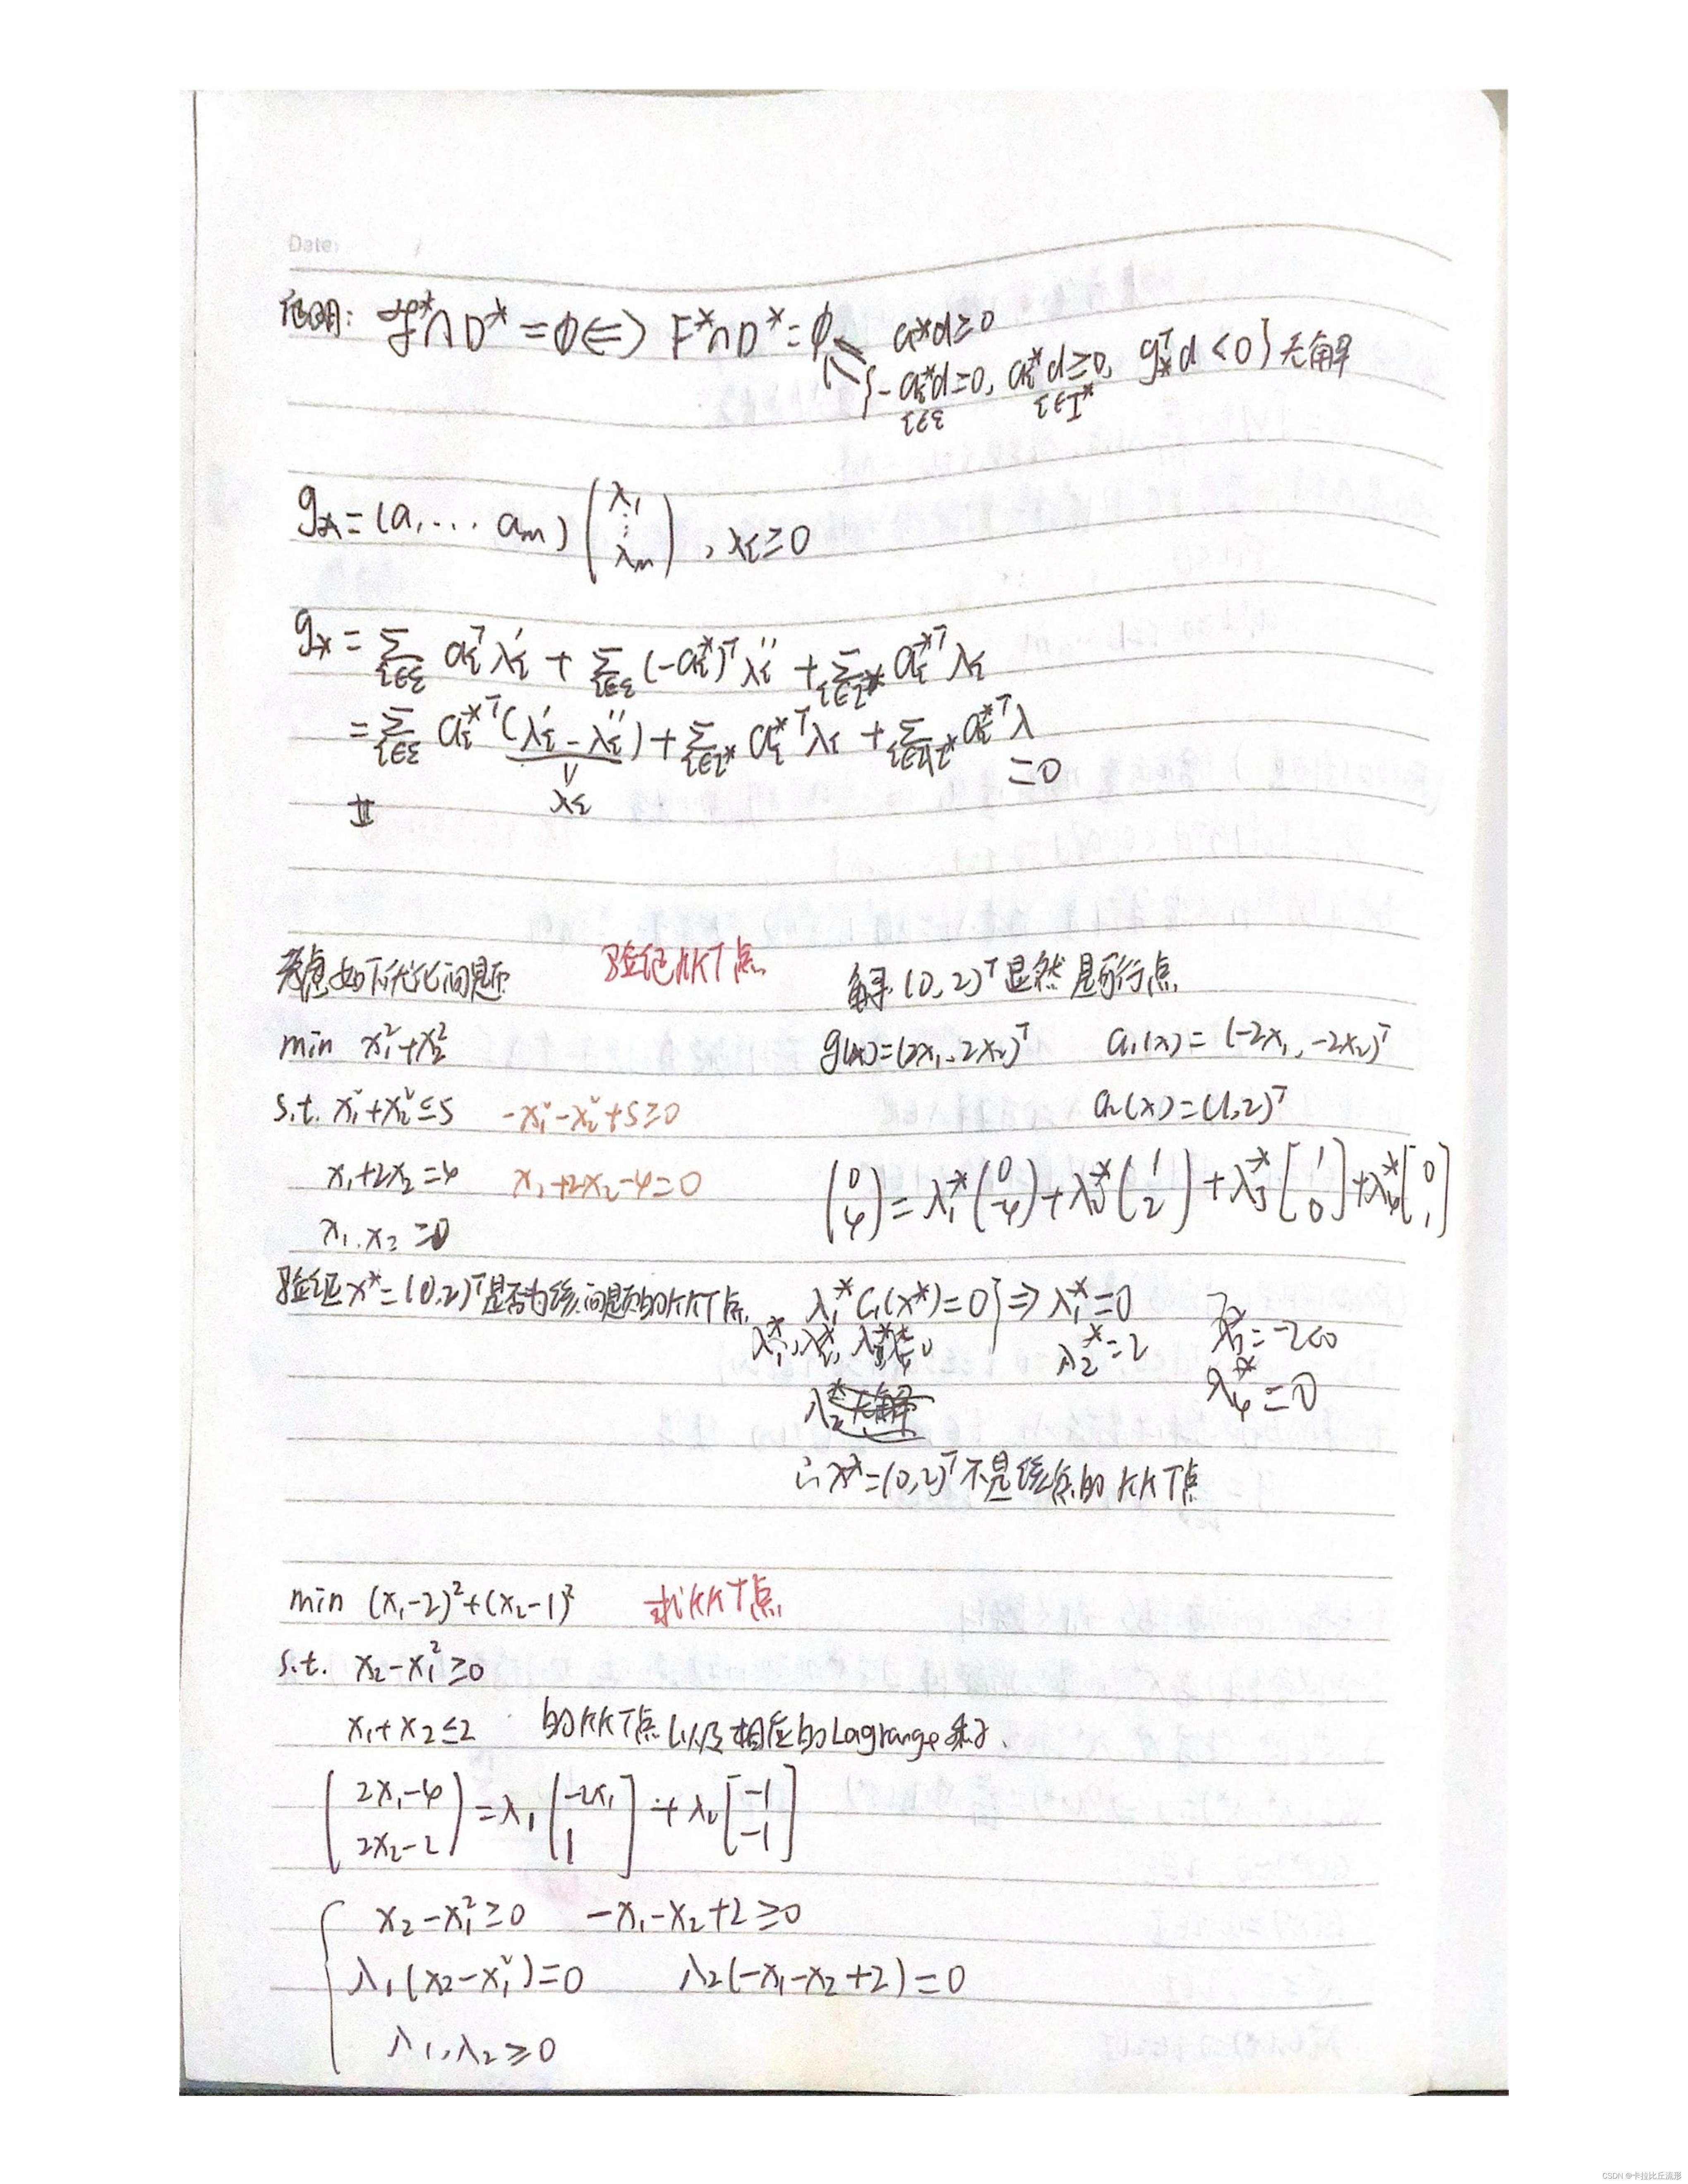 Date:
证明: 𝓕*∩D*=∅ ⟺ F*∩D*=∅ a*d≥0
{-aᵢ*d=0, aᵢ*d≥0, g*ᵀd<0} 无解
i∈ε i∈I*
g*=(a₁ ⋯ aₘ)(λ₁ ⋮ λₘ), λᵢ≥0
g* = Σ_{i∈ε} aᵢᵀλᵢ' + Σ_{i∈ε} (-aᵢ*)ᵀλᵢ'' + Σ_{i∈I*} aᵢ*ᵀλᵢ
= Σ_{i∈ε} aᵢ*ᵀ(λᵢ'-λᵢ'') + Σ_{i∈I*} aᵢ*ᵀλᵢ + Σ_{i∈I\I*} aᵢ*ᵀλ
λᵢ =0
考虑如下优化问题 验证KKT点
min x₁²+x₂²
s.t. x₁²+x₂²≤5 -x₁²-x₂²+5≥0
x₁+2x₂=4 x₁+2x₂-4=0
x₁, x₂ ≥0
验证x*=(0,2)ᵀ是否为该问题的KKT点.
解: (0,2)ᵀ显然是可行点
g(x)=(2x₁, 2x₂)ᵀ a₁(x)=(-2x₁, -2x₂)ᵀ
a₂(x)=(1,2)ᵀ
(0 4)=λ₁*(0 -4)+λ₂*(1 2)+λ₃*[1 0]+λ₄*[0 1]
λ₁*C₁(x*)=0 } ⇒ λ₁*=0 λ₃*=-2<0
λ₂*=2 λ₄*=0
∴ x*=(0,2)ᵀ不是该点的KKT点
min (x₁-2)²+(x₂-1)² 求KKT点
s.t. x₂-x₁²≥0
x₁+x₂≤2 的KKT点以及相应的Lagrange乘子.
(2x₁-4 2x₂-2)=λ₁[-2x₁ 1]+λ₂[-1 -1]
{ x₂-x₁²≥0 -x₁-x₂+2≥0
λ₁(x₂-x₁²)=0 λ₂(-x₁-x₂+2)=0
λ₁,λ₂≥0
CSDN @卡拉比丘流形